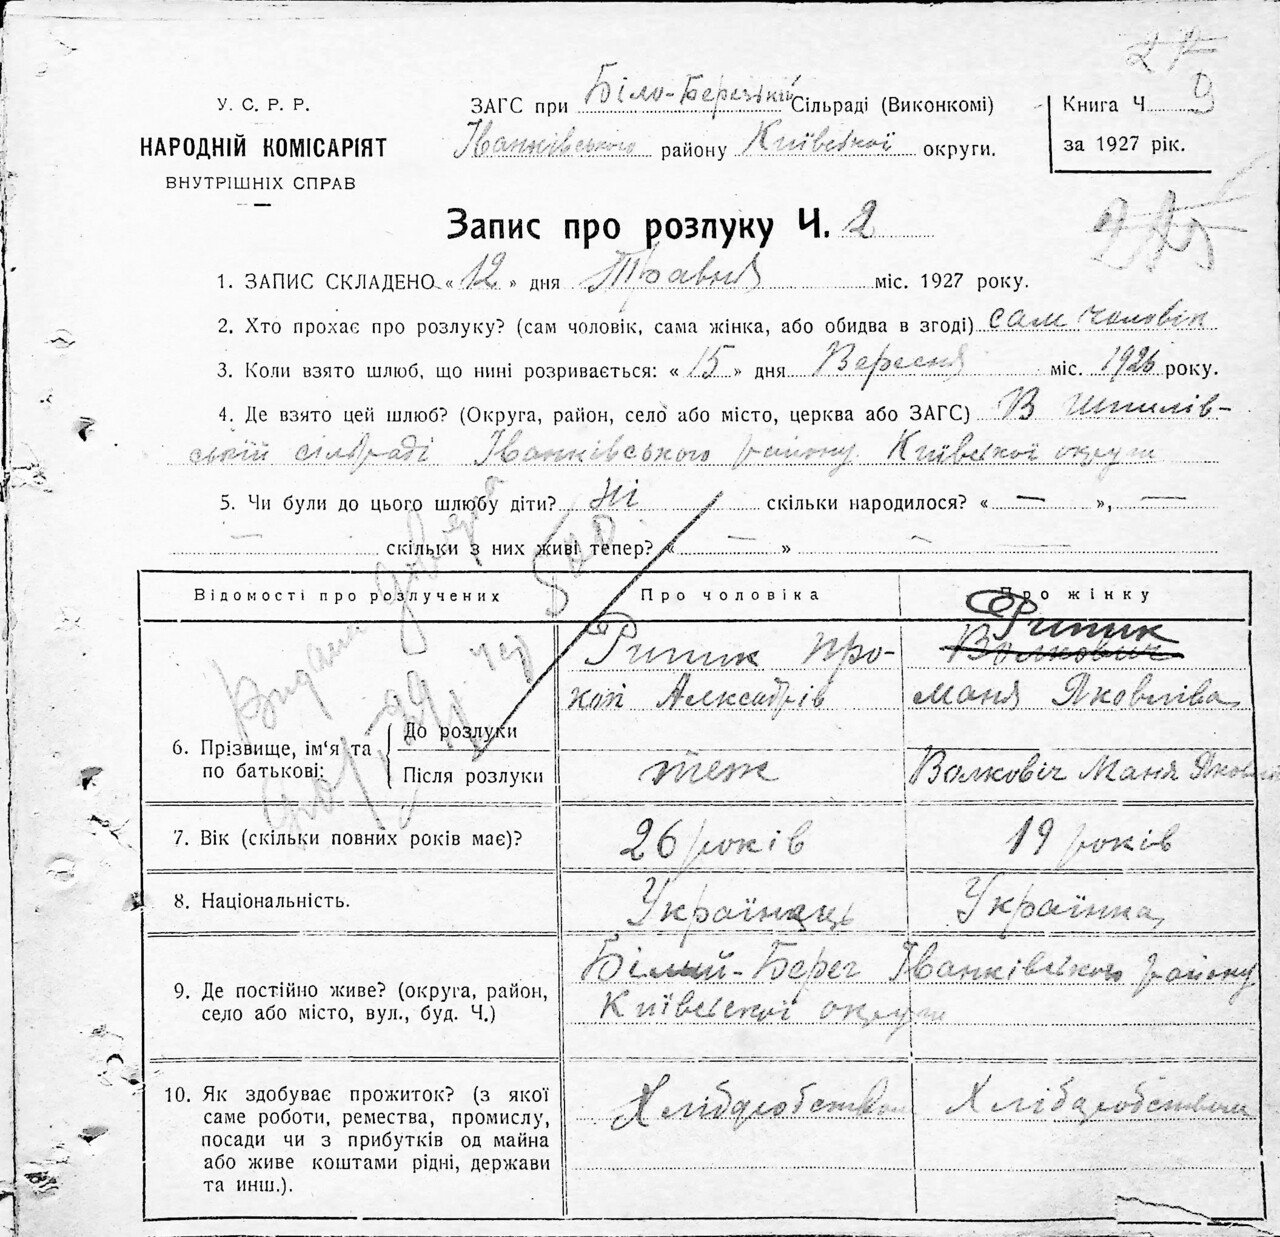 У. С. Р. Р.
НАРОДНІЙ КОМІСАРІЯТ
ВНУТРІШНІХ СПРАВ
ЗАГС при Біло-Березькій Сільраді (Виконкомі)
Іванківського району Київської округи.
Книга Ч. 9
за 1927 рік.
Запис про розлуку Ч. 2
1. ЗАПИС СКЛАДЕНО „ 12 " дня Травня міс. 1927 року.
2. Хто прохає про розлуку? (сам чоловік, сама жінка, або обидва в згоді) сам чоловік
3. Коли взято шлюб, що нині розривається: „ 15 " дня Вересня міс. 1926 року.
4. Де взято цей шлюб? (Округа, район, село або місто, церква або ЗАГС) В Шпилів-
ській сільраді Іванківського району Київської округи
5. Чи були до цього шлюбу діти? Ні скільки народилося? „ — ", —
— скільки з них живі тепер? „ — " —
Відомості про розлучених Про чоловіка Про жінку
6. Прізвище, ім'я та по батькові:
До розлуки
Рипик Про-
копі Алексадрів
Волкович Рипик
Маня Яковліва
Після розлуки теж Волковіч Маня
7. Вік (скільки повних років має)? 26 років 19 років
8. Національність. Українець Українка
9. Де постійно живе? (округа, район, Білий-Берег Іванківського району
село або місто, вул., буд. Ч.) Київської округи
10. Як здобуває прожиток? (з якої Хлібдобством Хлібдобством
саме роботи, ремества, промислу,
посади чи з прибутків од майна
або живе коштами рідні, держави
та инш.).